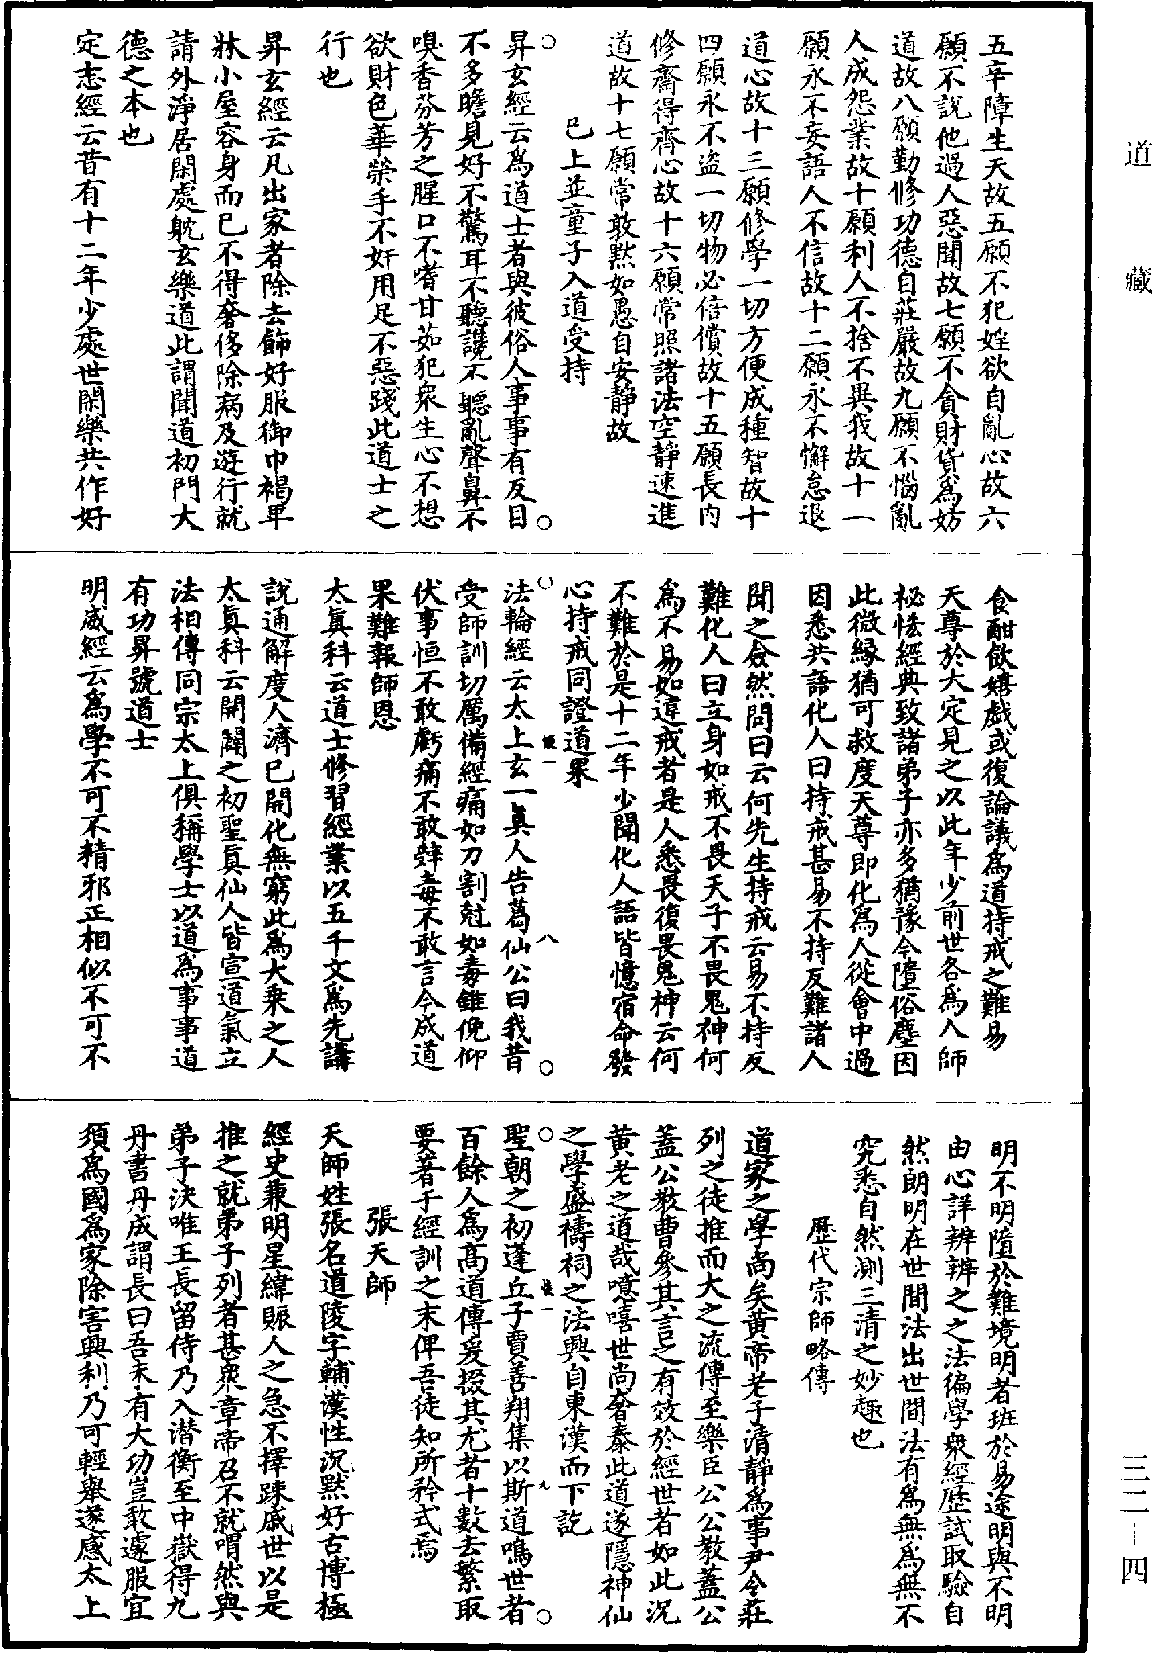 道藏
五辛障生天故五願不犯婬欲自亂心故六
願不說他過人惡聞故七願不貪財貨為妨
道故八願勤修功德自莊嚴故九願不惱亂
人成怨業故十願利人不捨不異我故十一
願永不妄語人不信故十二願永不懈怠退
道心故十三願修學一切方便成種智故十
四願永不盜一切物必倍償故十五願長內
修齋得齊心故十六願常照諸法空靜速進
道故十七願常敢默如愚自安靜故
已上並童子入道受持
昇玄經云為道士者與彼俗人事事有反目
不多瞻見好不驚耳不聽讒不聽亂聲鼻不
嗅香芬芳之腥口不嗜甘茹犯衆生心不想
欲財色華榮手不奸用足不惡踐此道士之
行也
昇玄經云凡出家者除去飾好服御巾褐單
牀小屋容身而已不得奢侈除病及遊行就
請外淨居閑處躭玄樂道此謂聞道初門大
德之本也
定志經云昔有十二年少處世閑樂共作好
食酣飲嬉戲或復論議為道持戒之難易
天尊於大定見之以此年少前世各為人師
祕恡經典致諸弟子亦多猶豫今墮俗塵因
此微緣猶可救度天尊即化為人從會中過
因悉共語化人曰持戒甚易不持反難諸人
聞之僉然問曰云何先生持戒云易不持反
難化人曰立身如戒不畏天子不畏鬼神何
為不易如違戒者是人悉畏復畏鬼神云何
不難於是十二年少聞化人語皆憶宿命發
心持戒同證道果
法輪經云太上玄一真人告葛仙公曰我昔
受師訓切厲備經痛如刀割尅如毒錐俛仰
伏事恒不敢虧痛不敢辤毒不敢言今成道
果難報師恩
太真科云道士修習經業以五千文為先講
說通解度人濟已開化無窮此為大乘之人
太真科云開闢之初聖真仙人皆宣道氣立
法相傳同宗太上俱稱學士以道為事事道
有功昇號道士
明威經云為學不可不精邪正相似不可不
明不明墮於難境明者班於易途明與不明
由心詳辨辨之之法徧學衆經歷試取驗自
然朗明在世間法出世間法有為無為無不
究悉自然測三清之妙趣也
歷代宗師略傳
道家之學尚矣黃帝老子清靜為事尹令莊
列之徒推而大之流傳至樂臣公公教蓋公
蓋公教曹參其言之有效於經世者如此沉
黃老之道哉噫嘻世尚奢泰此道遂隱神仙
之學盛禱祠之法興自東漢而下訖
聖朝之初蓬丘子賈善翔集以斯道鳴世者
百餘人為高道傳爰掇其尤者十數去繁取
要著于經訓之末俾吾徒知所矜式焉
張天師
天師姓張名道陵字輔漢性沉默好古博極
經史兼明星緯賑人之急不擇踈戚世以是
推之就弟子列者甚衆章帝召不就喟然與
弟子決唯王長留侍乃入潛衡至中嶽得九
丹書丹成謂長曰吾未有大功豈敢遽服宜
須為國為家除害興利乃可輕舉遂感太上
三二—四